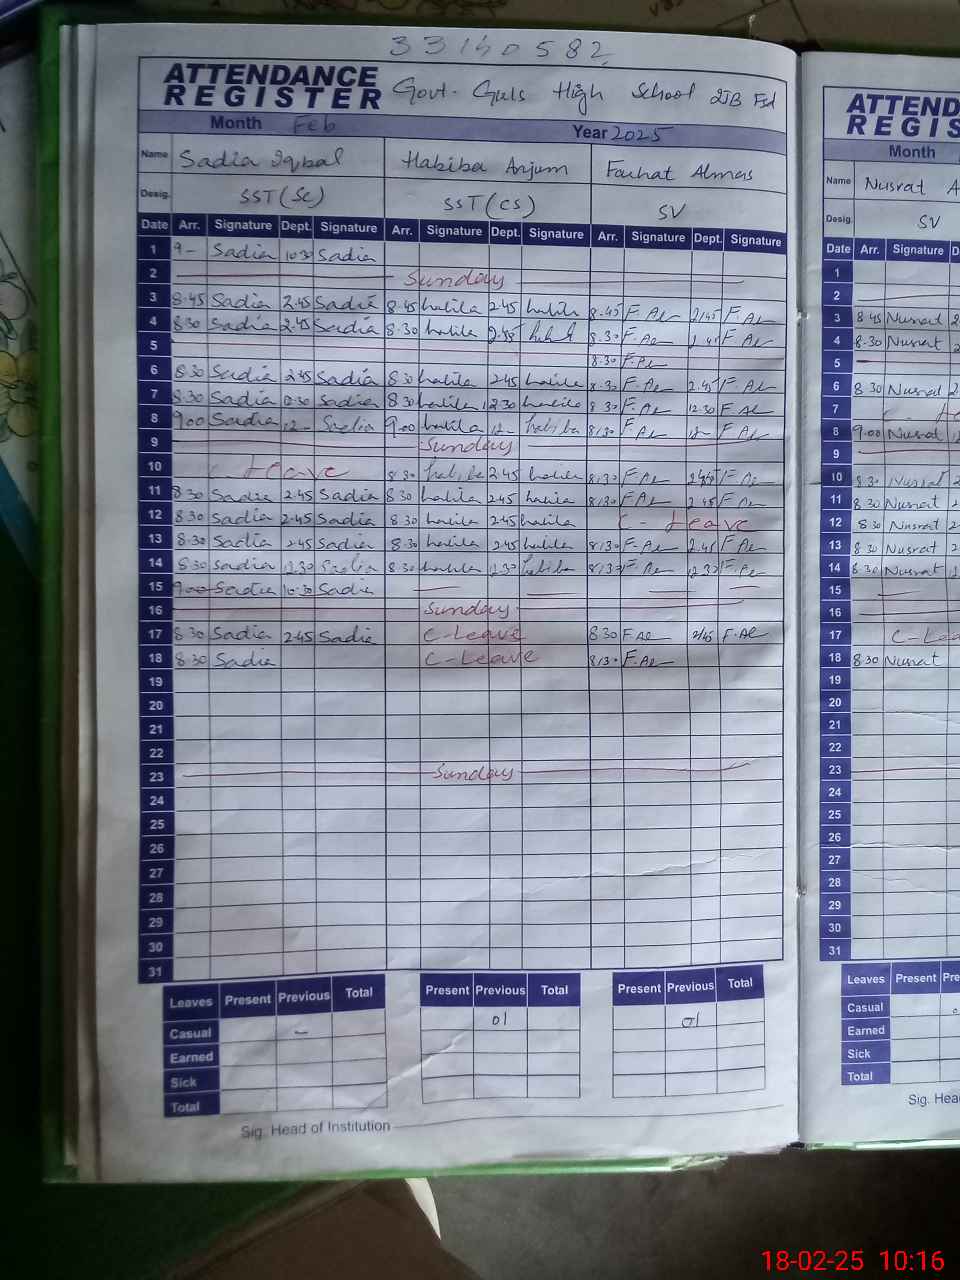 33140582
ATTENDANCE REGISTER Govt- Girls High School 2JB Fsd
Month Feb Year 2025
Name Sadia Iqbal Habiba Anjum Farhat Almas
Desig. SST(Sc) SST(CS) SV
Date Arr. Signature Dept. Signature Arr. Signature Dept. Signature Arr. Signature Dept. Signature
1 9- Sadia 10:30 Sadia
2 Sunday
3 8.45 Sadia 2.45 Sadia 8.45 habiba 2.45 habiba 8.45 F.Al 2.45 F.Al
4 8.30 Sadia 2.45 Sadia 8.30 habiba 2.45 8.30 F.Al 2.45 F.Al
5 8.30 F.Al
6 8.30 Sadia 2.45 Sadia 8.30 habiba 2.45 habiba 8.30 F.Al 2.45 F.Al
7 8.30 Sadia Sadia 8.30 habiba 12.30 habiba 8.30 F.Al 12.30 F.Al
8 9.00 Sadia 12- Sadia 9.00 habiba 12- habiba 8.30 F.Al 12- F.Al
9 Sunday
10 Leave 8.30 habiba 2.45 habiba 8.30 F.Al 2.45 F.Al
11 8.30 Sadia 2.45 Sadia 8.30 habiba 2.45 habiba 8.30 F.Al 2.45 F.Al
12 8.30 Sadia 2.45 Sadia 8.30 habiba 2.45 habiba C- Leave
13 8.30 Sadia 2.45 Sadia 8.30 habiba 2.45 habiba 8.30 F.Al 2.45 F.Al
14 8.30 Sadia 12.30 Sadia 8.30 habiba 12.30 habiba 8.30 F.Al 12.30 F.Al
15 9.00 Sadia 10.30 Sadia
16 Sunday
17 8.30 Sadia 2.45 Sadia C-Leave 8.30 F.Al 2.45 F.Al
18 8.30 Sadia C-Leave 8.30 F.Al
19
20
21
22
23 Sunday
24
25
26
27
28
29
30
31
Leaves Present Previous Total Present Previous Total Present Previous Total
Casual - 01 01
Earned
Sick
Total
Sig. Head of Institution
ATTEND
REGIS
Month
Name Nusrat A
Desig. SV
Date Arr. Signature D
1
2
3 8.45 Nusrat 2
4 8.30 Nusrat 2
5
6 8.30 Nusrat 2
7
8 9.00 Nusrat
9
10 8.30 Nusrat 2
11 8.30 Nusrat 2
12 8.30 Nusrat 2
13 8.30 Nusrat 2
14 8.30 Nusrat
15
16
17 C-Lea
18 8.30 Nusrat
19
20
21
22
23
24
25
26
27
28
29
30
31
Leaves Present Pre
Casual
Earned
Sick
Total
Sig. Hea
18-02-25 10:16